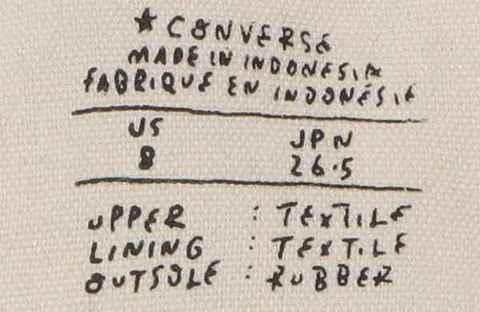 ★CONVERSE
MADE IN INDONESIA
FABRIQUE EN INDONÉSIE
US JPN
8 26.5
UPPER : TEXTILE
LINING : TEXTILE
OUTSOLE : RUBBER